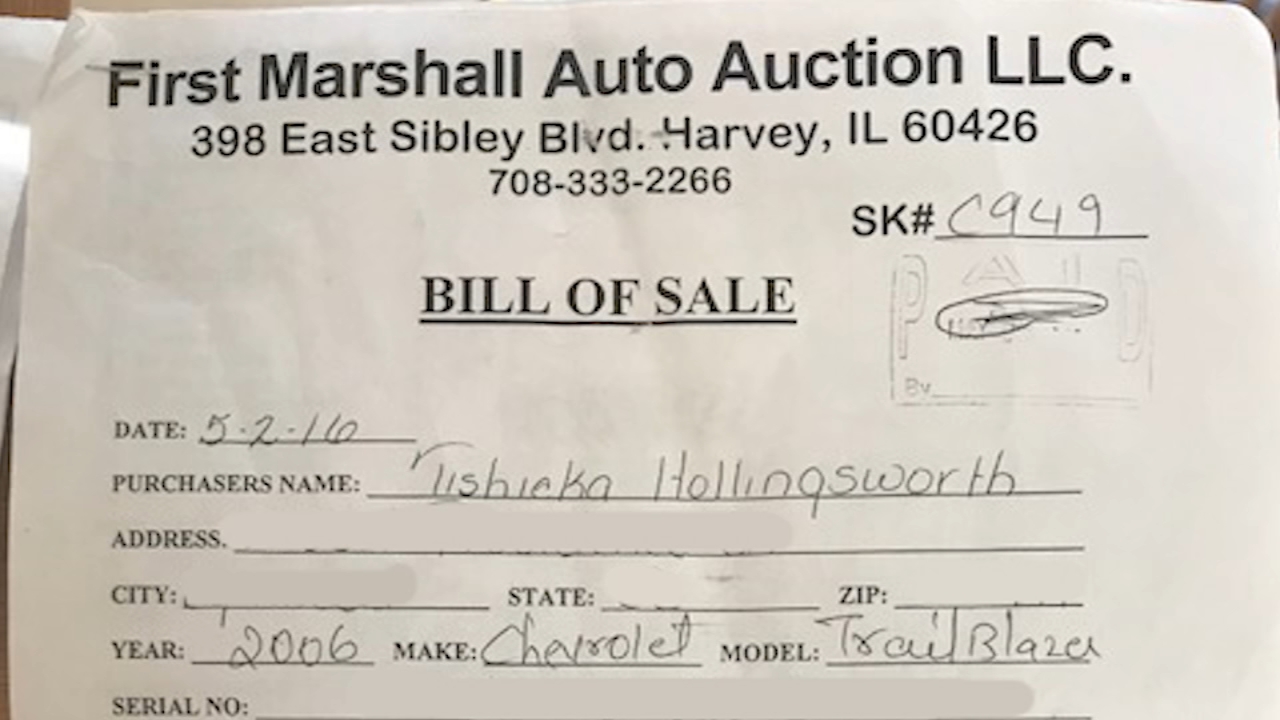 First Marshall Auto Auction LLC.
398 East Sibley Blvd. Harvey, IL 60426
708-333-2266
SK# C949
PAID
BILL OF SALE
By
DATE: 5-2-16
PURCHASERS NAME: Tishieka Hollingsworth
ADDRESS.
CITY: STATE: ZIP:
YEAR: 2006 MAKE: Chevrolet MODEL: TrailBlazer
SERIAL NO: